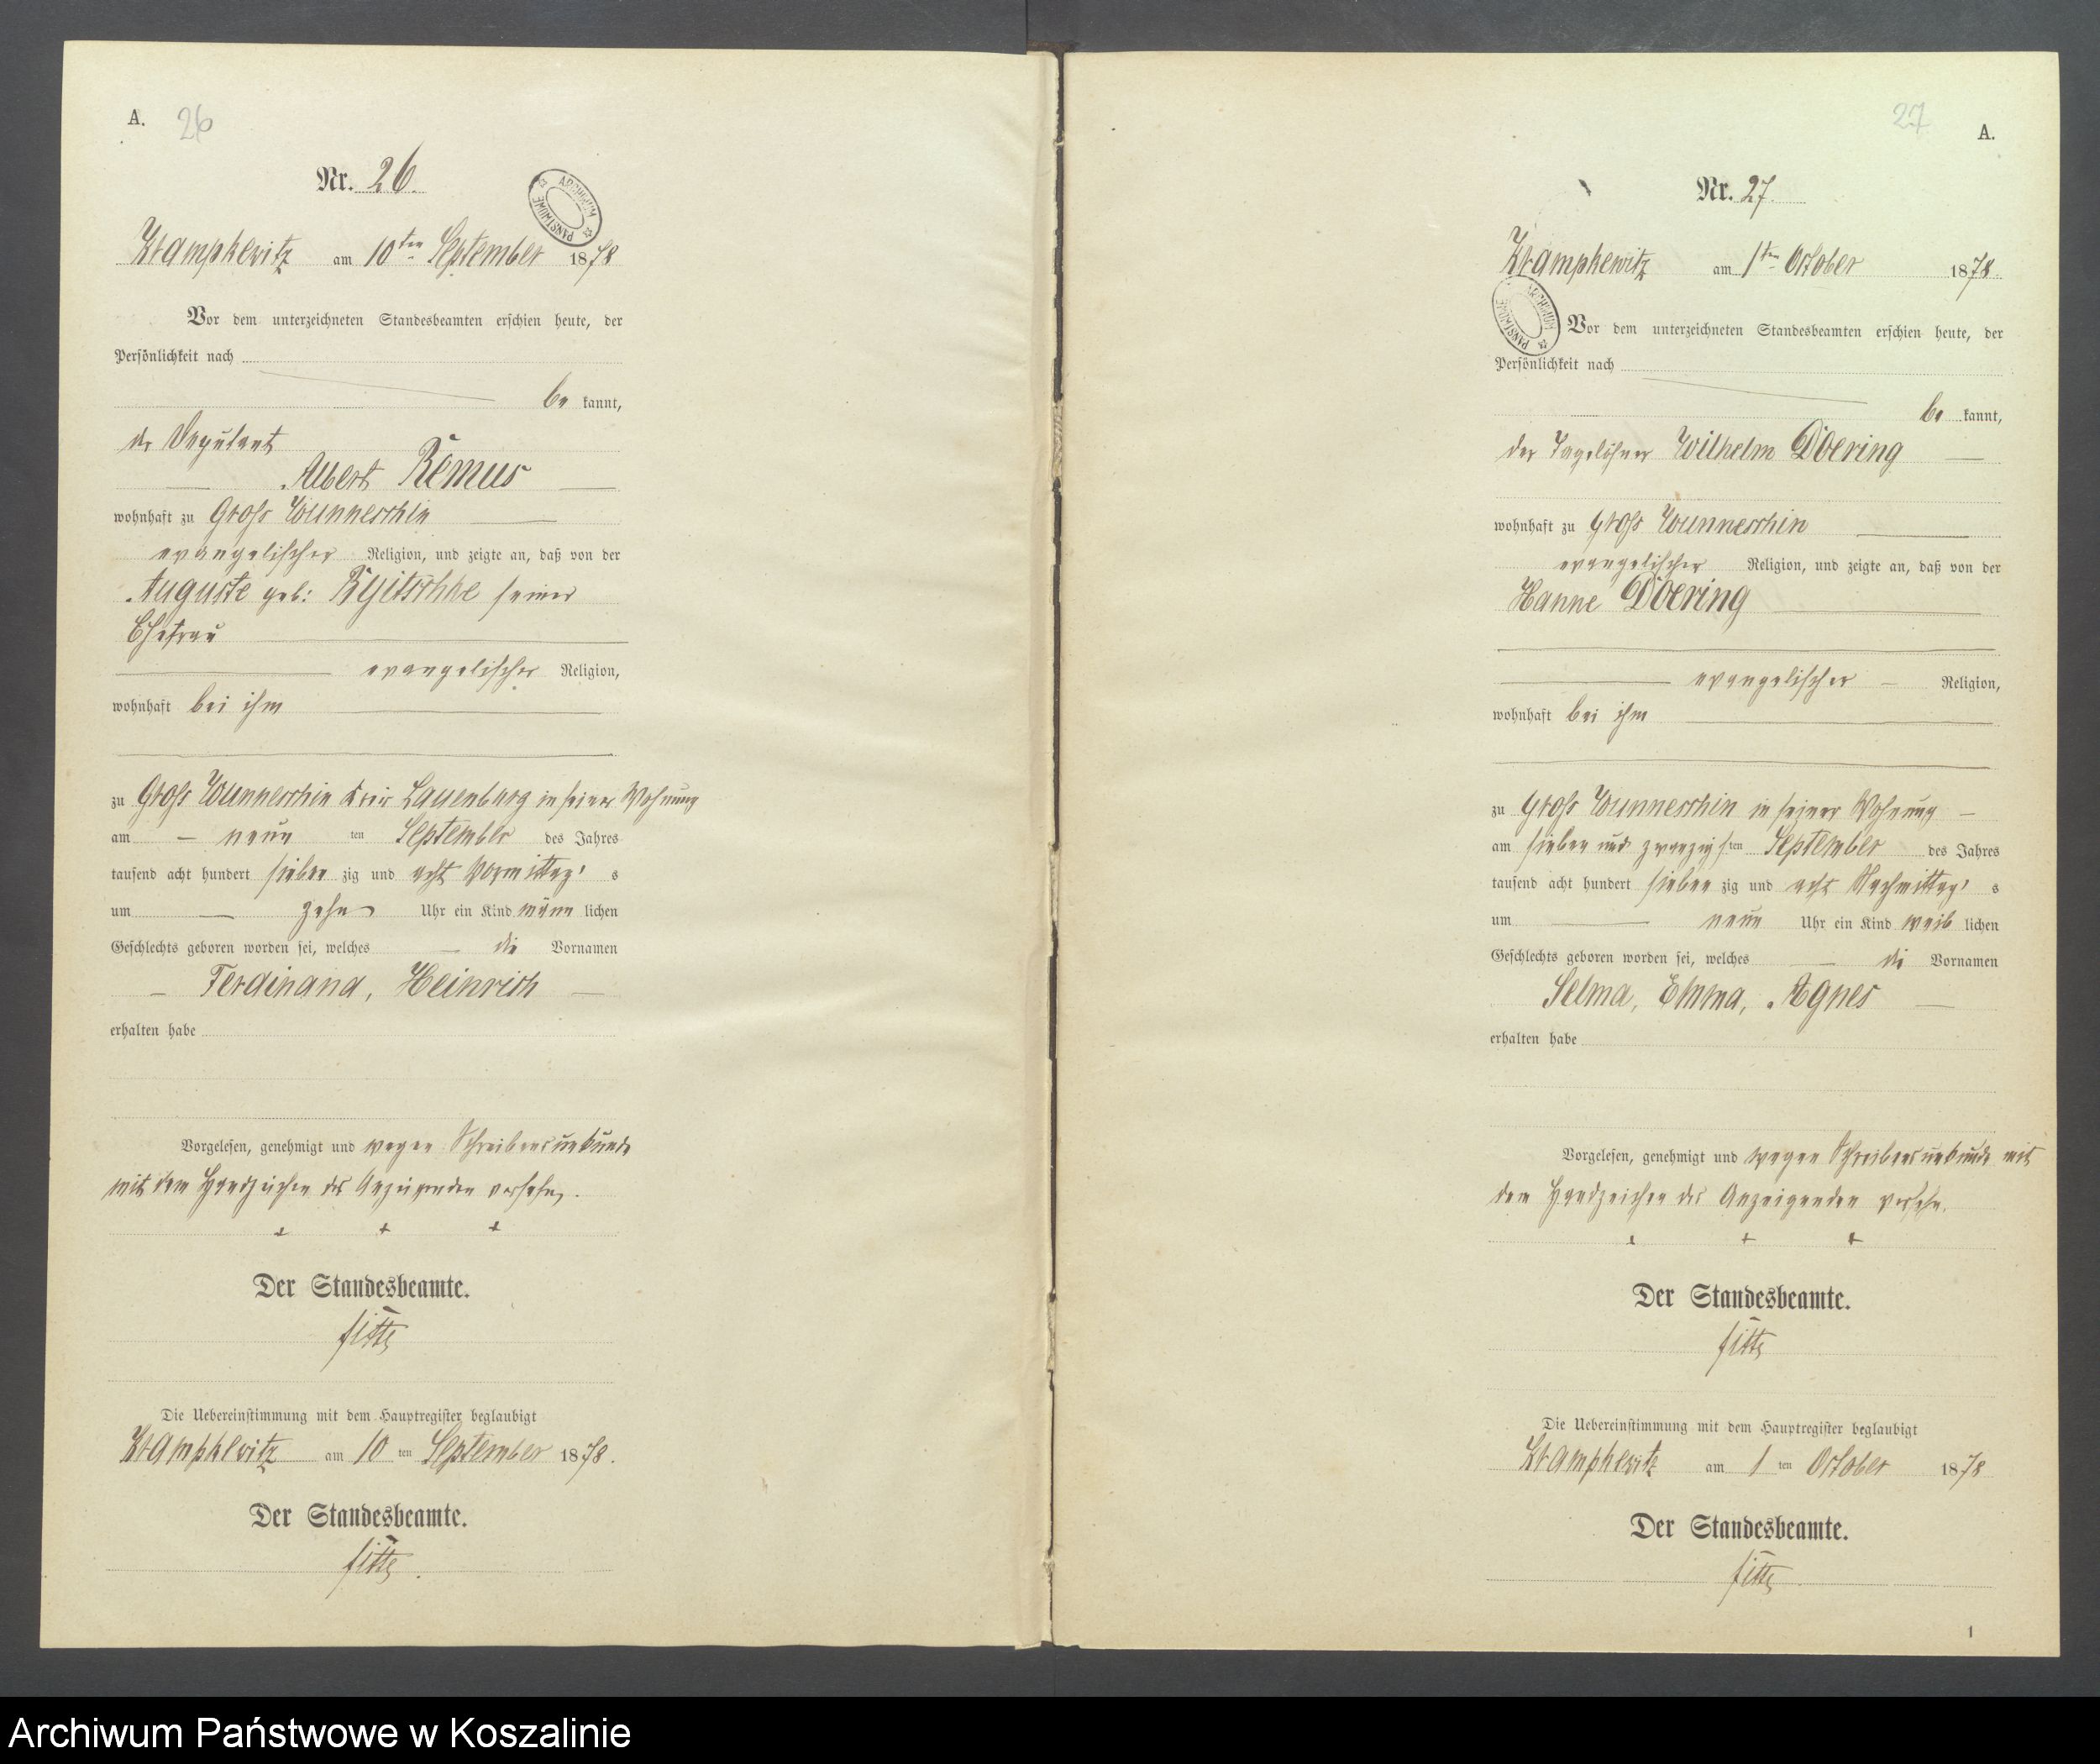 A. 26
Nr. 26.
ARCHIWUM PAŃSTWOWE
Krampkewitz am 10ten September 1878
Vor dem unterzeichneten Standesbeamten erschien heute, der
Persönlichkeit nach
be kannt,
der Deputant
Albert Remus
wohnhaft zu Gross Wunneschin
evangelischer Religion, und zeigte an, daß von der
Auguste geb: seiner
Ehefrau
evangelischer Religion,
wohnhaft bei ihm
zu Gross Wunneschin Kreis Lauenburg in seiner Wohnung
am neun ten September des Jahres
tausend acht hundert sieben zig und acht Vormittag's
um zehn Uhr ein Kind männ lichen
Geschlechts geboren worden sei, welches die Vornamen
Ferdinand, Heinrich
erhalten habe
Vorgelesen, genehmigt und wegen Schreibensunkunde
mit dem Handzeichen des Anzeigenden versehen.
+ + +
Der Standesbeamte.
Die Uebereinstimmung mit dem Hauptregister beglaubigt
Krampkewitz am 10 ten September 1878.
Der Standesbeamte.
27 A.
Nr. 27.
Krampkewitz am 1ten October 1878
ARCHIWUM PAŃSTWOWE
Vor dem unterzeichneten Standesbeamten erschien heute, der
Persönlichkeit nach
be kannt,
der Tagelöhner Wilhelm Doering
wohnhaft zu Gross Wunneschin
evangelischer Religion, und zeigte an, daß von der
Hanne Doering
evangelischer Religion,
wohnhaft bei ihm
zu Gross Wunneschin in seiner Wohnung
am sieben und zwanzigs ten September des Jahres
tausend acht hundert sieben zig und acht Nachmittag's
um neun Uhr ein Kind weib lichen
Geschlechts geboren worden sei, welches die Vornamen
Selma, Emma, Agnes
erhalten habe
Vorgelesen, genehmigt und wegen Schreibensunkunde mit
dem Handzeichen des Anzeigenden versehn.
+ + +
Der Standesbeamte.
Die Uebereinstimmung mit dem Hauptregister beglaubigt
Krampkewitz am 1 ten October 1878
Der Standesbeamte.
1
Archiwum Państwowe w Koszalinie